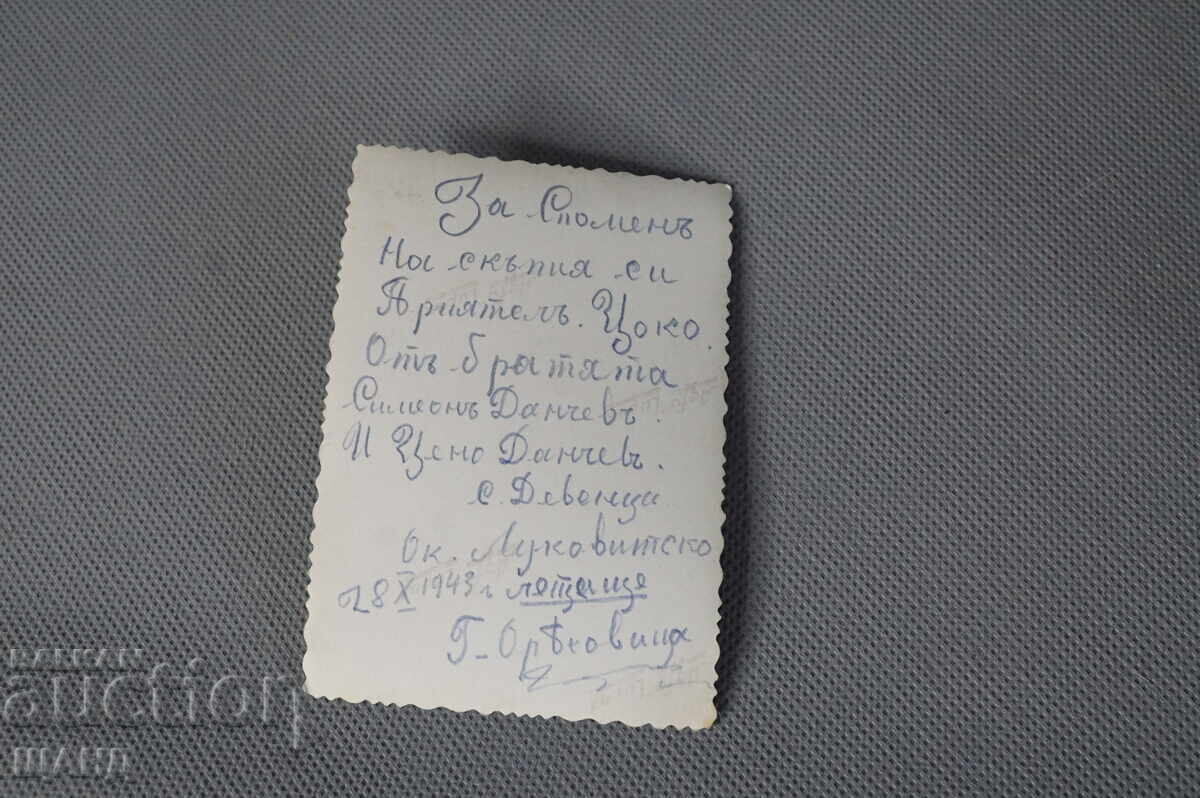 За Споменъ
На скъпия си
Приятелъ. Цоко.
Отъ братята
Симеонъ Данчевъ.
И Цено Данчевъ.
с. Девенци
Ок. Луковитско
28 X 1943 г. летище
Г-Орѣховица
БАЛКАН
auction
ШАНД